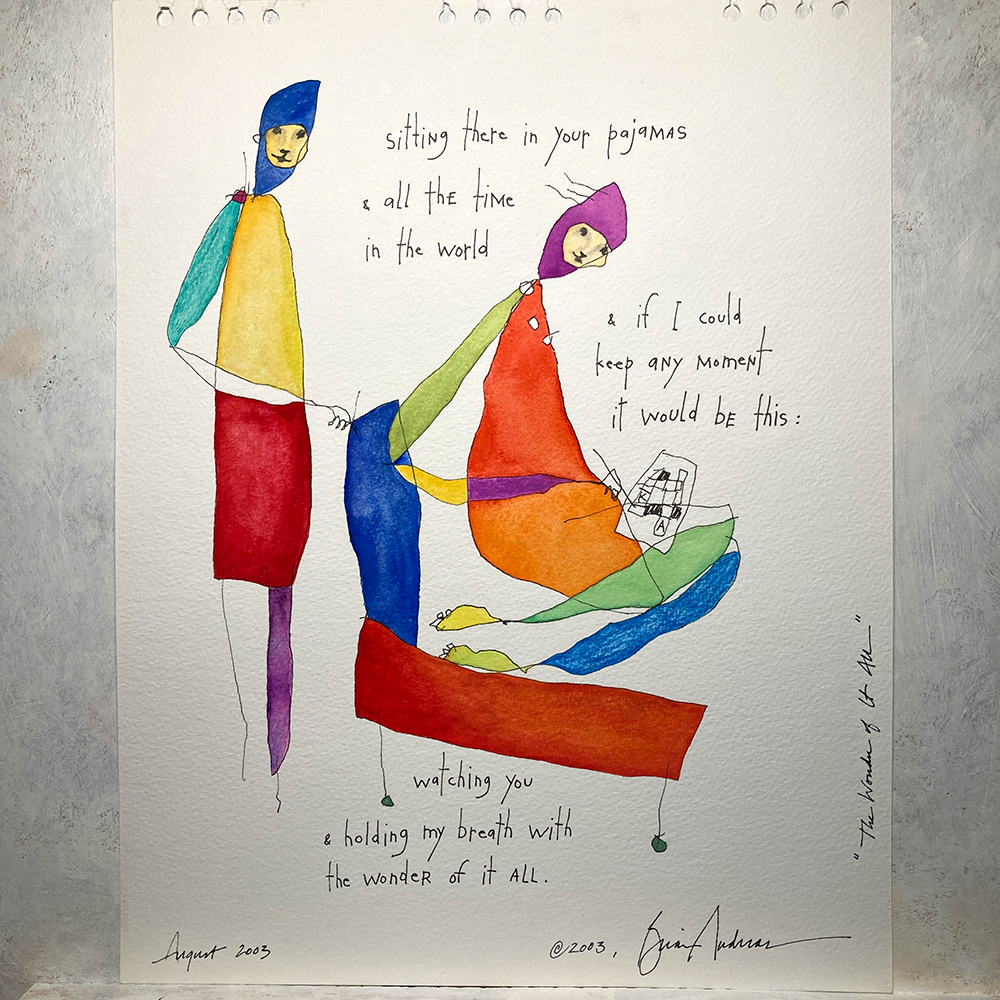 sitting there in your pajamas
& all the time
in the world
& if I could
keep any moment
it would be this:
K
A
watching you
& holding my breath with
the wonder of it all.
"The Wonder of It All"
August 2003
©2003, Brian Andreas